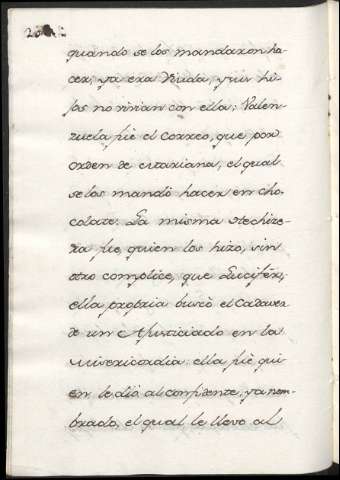 quando se los mandaron ha-
cer; ya era Viuda, y sus hi-
jos no vivian con ella: Valen-
zuela fué el Correo, que por
orden de Mariana, el qual
se los mandò hacer en cho-
colate. La misma Hechize-
ra fue, quien los hizo, sin
otro complice, que Lucifèr;
ella propria buscò el Cadaver
de un Ajusticiado en la
Misericordia: ella fuè qui
en le diò al confidente, ya nom-
brado, el qual le llevo al